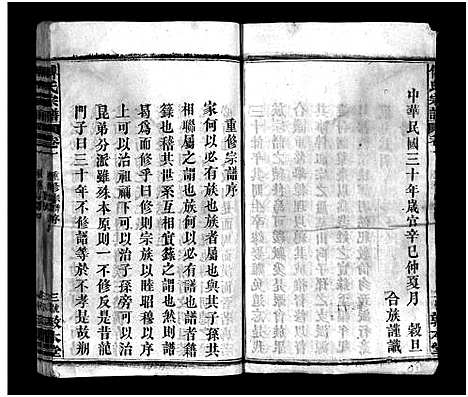 中華民國三十年歲宜辛巳仲夏月 穀旦
合族謹識
重修宗譜序
家何以必有族也族者其與共子孫共
相聯屬之謂也族何以必有譜也譜者籍
籙也稽其世系互相宜錄之謂也然則譜
曷為而修乎曰修則宗族以睦昭穆以序
上可以治祖禰下可以治子孫旁可以治
昆弟分派雖殊本原則一不修反是昔龍
門子曰三十年不修譜等於不孝是故朔
氏宗譜
卷一
重修宗譜序
三
敦本堂